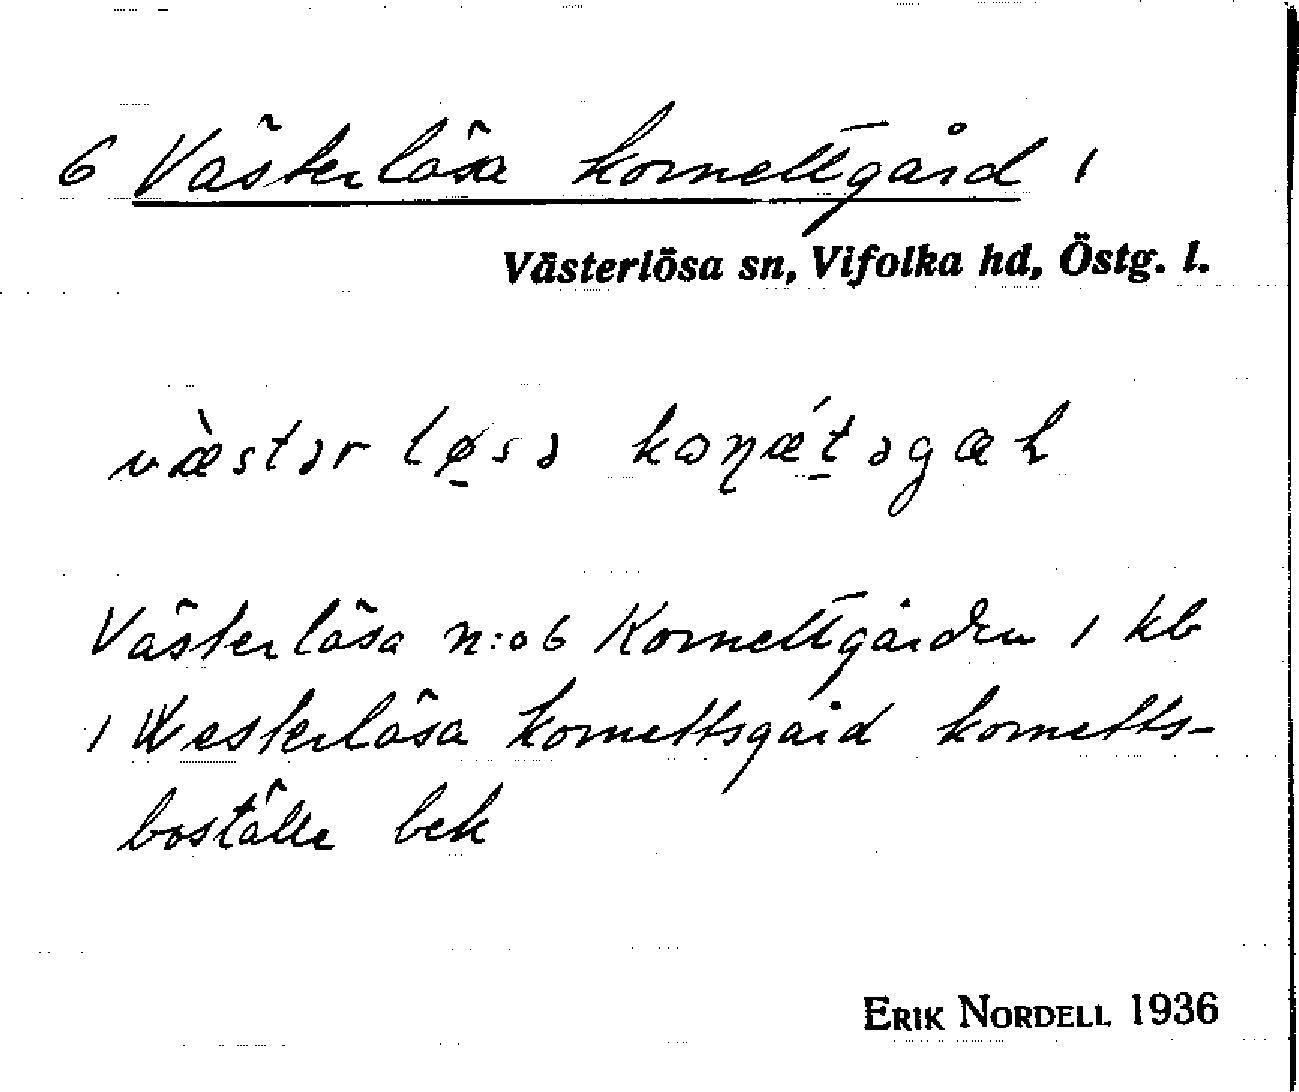 6 Västerlösa kornettgård 1
Västerlösa sn, Vifolka hd, Östg. l.
Västerlösa n:o 6 Kornettgården 1 kb
1 Westerlösa kornettsgård kornetts-
boställe bek
ERIK NORDELL 1936